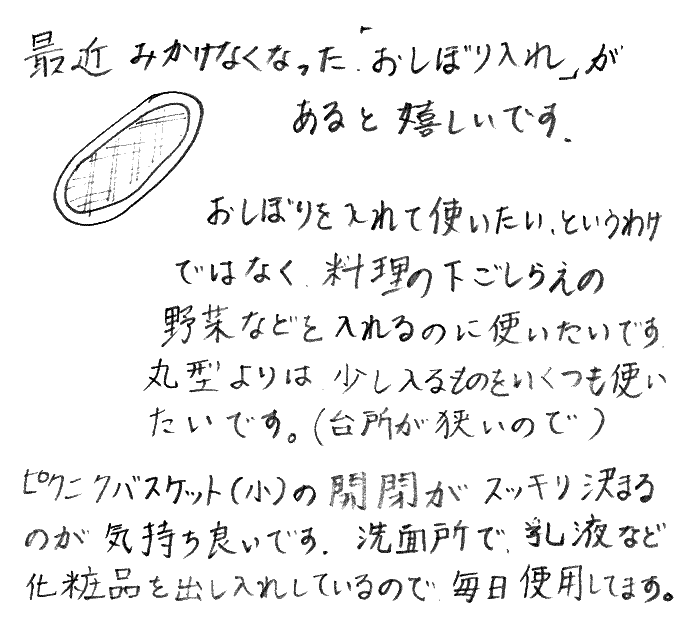 最近 みかけなくなった「おしぼり入れ」が
あると嬉しいです.
おしぼりを入れて使いたい、というわけ
ではなく 料理の下ごしらえの
野菜などを入れるのに使いたいです
丸型よりは 少し入るものをいくつも使い
たいです。(台所が狭いので)
ピクニクバスケット(小)の開閉が スッキリ決まる
のが 気持ち良いです. 洗面所で、乳液など
化粧品を出し入れしているので 毎日使用してます。